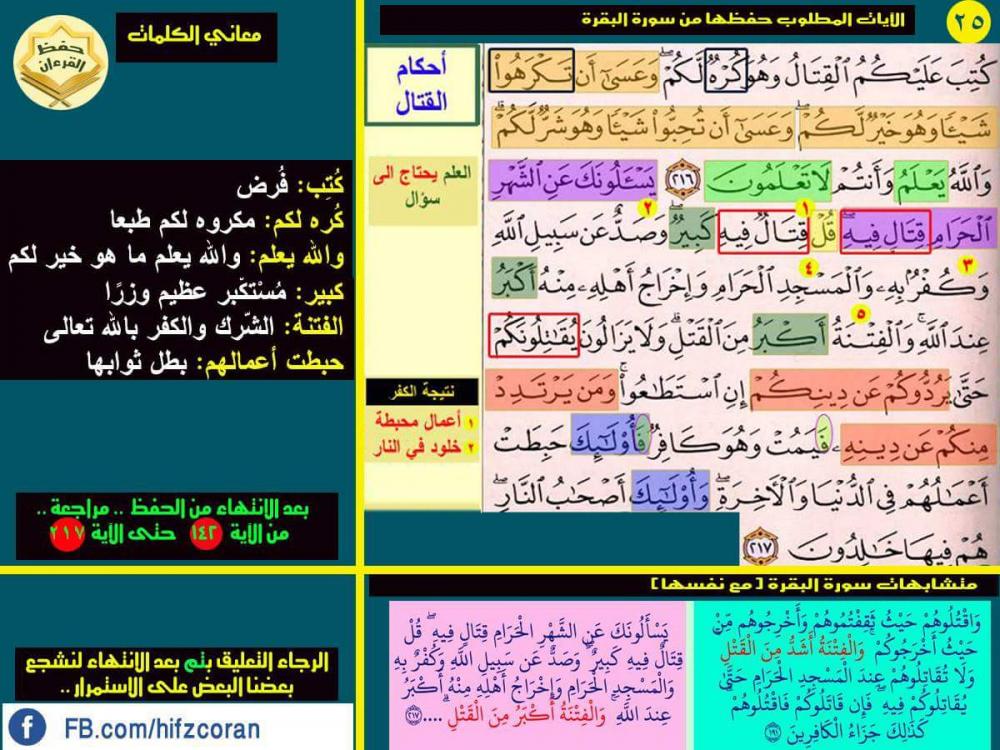 ٢٥
الآيات المطلوب حفظها من سورة البقرة
أحكام
القتال
كُتِبَ عَلَيْكُمُ ٱلْقِتَالُ وَهُوَ كُرْهٌ لَّكُمْ ۖ وَعَسَىٰٓ أَن تَكْرَهُوا۟
شَيْـًٔا وَهُوَ خَيْرٌ لَّكُمْ ۖ وَعَسَىٰٓ أَن تُحِبُّوا۟ شَيْـًٔا وَهُوَ شَرٌّ لَّكُمْ ۗ
وَٱللَّهُ يَعْلَمُ وَأَنتُمْ لَا تَعْلَمُونَ ٢١٦ يَسْـَٔلُونَكَ عَنِ ٱلشَّهْرِ
ٱلْحَرَامِ قِتَالٍ فِيهِ ۖ قُلْ قِتَالٌ فِيهِ كَبِيرٌ ۖ وَصَدٌّ عَن سَبِيلِ ٱللَّهِ
وَكُفْرٌۢ بِهِۦ وَٱلْمَسْجِدِ ٱلْحَرَامِ وَإِخْرَاجُ أَهْلِهِۦ مِنْهُ أَكْبَرُ
عِندَ ٱللَّهِ ۚ وَٱلْفِتْنَةُ أَكْبَرُ مِنَ ٱلْقَتْلِ ۗ وَلَا يَزَالُونَ يُقَـٰتِلُونَكُمْ
حَتَّىٰ يَرُدُّوكُمْ عَن دِينِكُمْ إِنِ ٱسْتَطَـٰعُوا۟ ۚ وَمَن يَرْتَدِدْ
مِنكُمْ عَن دِينِهِۦ فَيَمُتْ وَهُوَ كَافِرٌ فَأُو۟لَـٰٓئِكَ حَبِطَتْ
أَعْمَـٰلُهُمْ فِى ٱلدُّنْيَا وَٱلْـَٔاخِرَةِ ۖ وَأُو۟لَـٰٓئِكَ أَصْحَـٰبُ ٱلنَّارِ ۖ
هُمْ فِيهَا خَـٰلِدُونَ ٢١٧
١
٢
٣
٤
٥
العلم يحتاج الى
سؤال
نتيجة الكفر
١ أعمال محبطة
٢ خلود في النار
حفظ
القرءان
معاني الكلمات
كُتِب: فُرض
كُره لكم: مكروه لكم طبعا
والله يعلم: والله يعلم ما هو خير لكم
كبير: مُسْتكْبر عظيم وزرًا
الفتنة: الشّرك والكفر بالله تعالى
حبطت أعمالهم: بطل ثوابها
بعد الانتهاء من الحفظ .. مراجعة ..
من الآية ١٤٢ حتى الآية ٢١٧
متشابهات سورة البقرة (مع نفسها)
وَاقْتُلُوهُمْ حَيْثُ ثَقِفْتُمُوهُمْ وَأَخْرِجُوهُم مِّنْ
حَيْثُ أَخْرَجُوكُمْ ۚ وَالْفِتْنَةُ أَشَدُّ مِنَ الْقَتْلِ ۚ
وَلَا تُقَاتِلُوهُمْ عِندَ الْمَسْجِدِ الْحَرَامِ حَتَّىٰ
يُقَاتِلُوكُمْ فِيهِ ۖ فَإِن قَاتَلُوكُمْ فَاقْتُلُوهُمْ ۗ
كَذَٰلِكَ جَزَاءُ الْكَافِرِينَ ١٩١
يَسْأَلُونَكَ عَنِ الشَّهْرِ الْحَرَامِ قِتَالٍ فِيهِ ۖ قُلْ
قِتَالٌ فِيهِ كَبِيرٌ ۖ وَصَدٌّ عَن سَبِيلِ اللَّهِ وَكُفْرٌ بِهِ
وَالْمَسْجِدِ الْحَرَامِ وَإِخْرَاجُ أَهْلِهِ مِنْهُ أَكْبَرُ
عِندَ اللَّهِ ۚ وَالْفِتْنَةُ أَكْبَرُ مِنَ الْقَتْلِ ۗ .... ٢١٧
الرجاء التعليق بتم بعد الانتهاء لنشجع
بعضنا البعض على الاستمرار ..
FB.com/hifzcoran